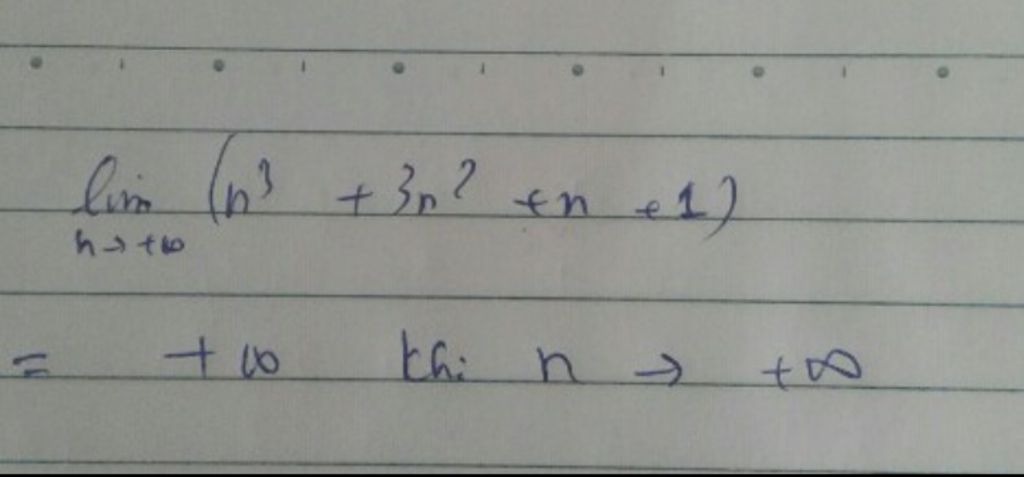 lim (n³ + 3n² + n + 1)
n → +∞
= +∞ khi n → +∞